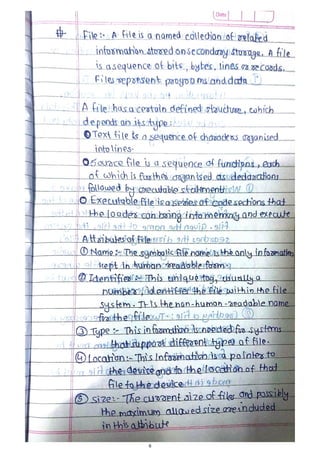 Date
# File :- A file is a named collection of related
information stored on secondary storage. A file
is a sequence of bits, bytes, lines or records.
Files represent programs and data
A file has a certain defined structure, which
depends on its type.
Text file is a sequence of characters organised
into lines.
Source file is a sequence of functions, each
of which is further organised as declarations
followed by executable statement.
Executable file is a series of code sections that
the loader can bring into memory and execute
Attributes of File
① Name :- The symbolic file name is the only information
kept in human readable form
② Identifier :- This unique tag, usually a
number, identifies the file within the file
system. It Is the non-human-readable name
for the file
③ Type :- This information is needed for systems
that support different types of file.
④ Location :- This Information is a pointer to
the device and to the location of that
file to the device
⑤ size :- The current size of files and possibly
the maximum allowed size are included
in this attribute